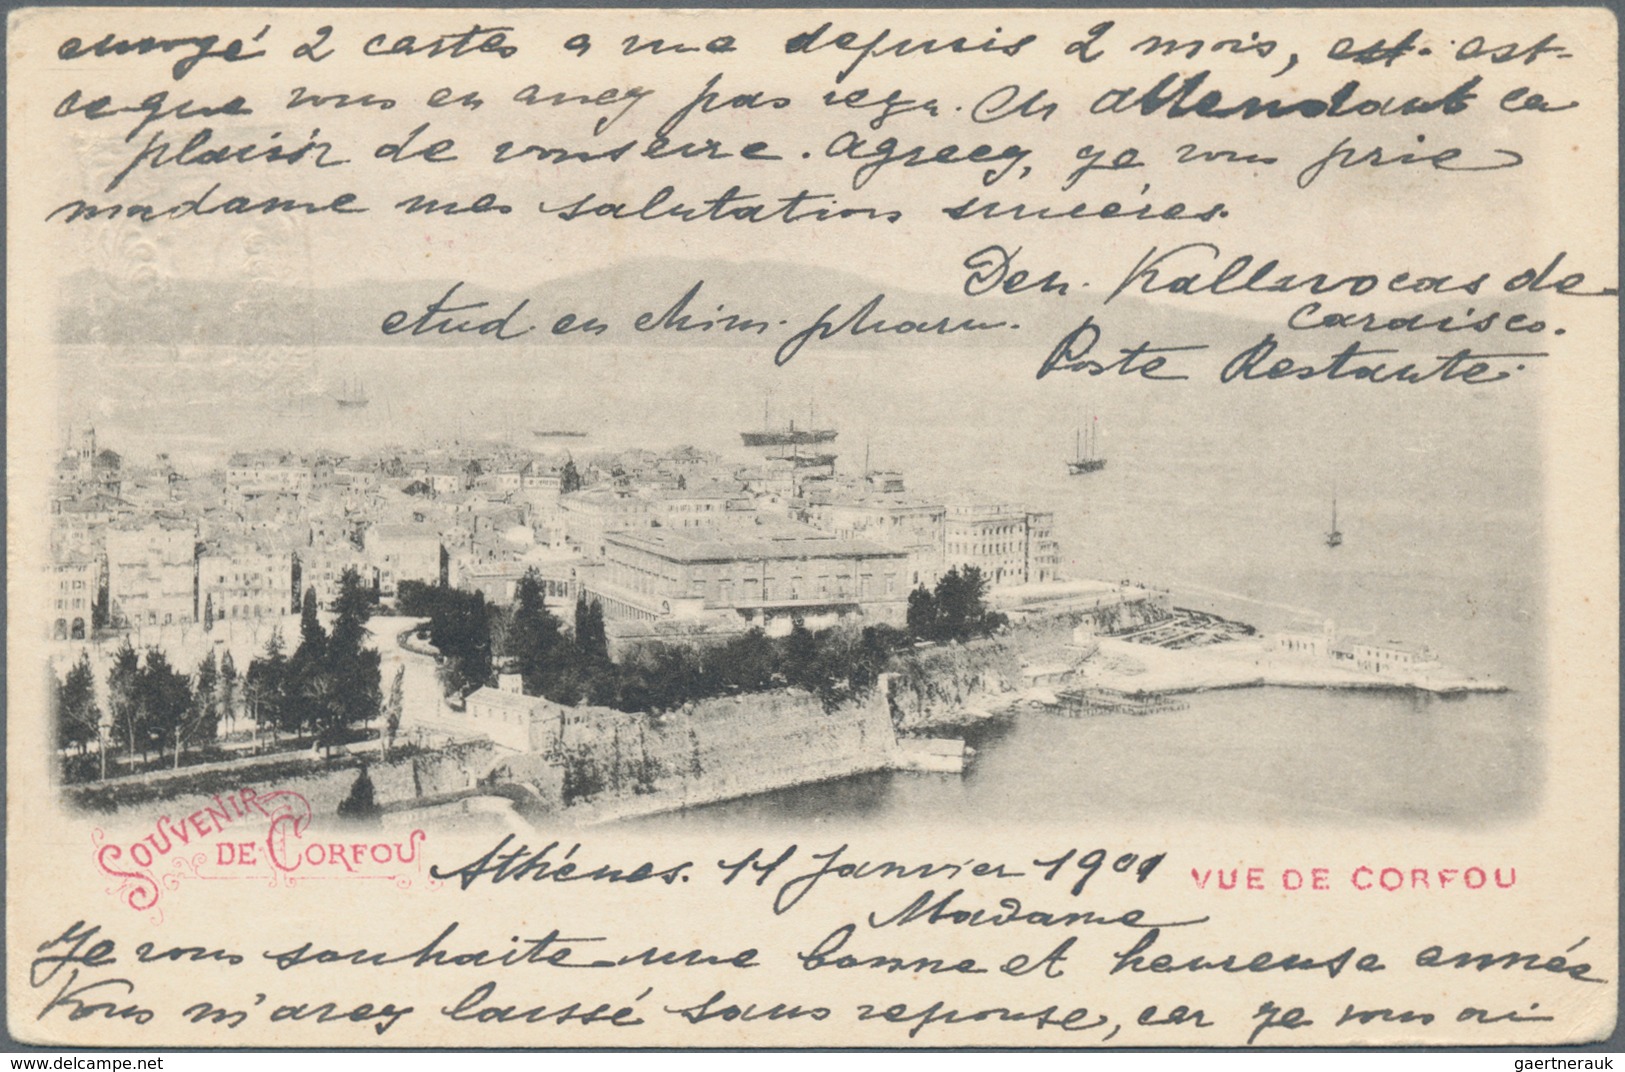 envoyé 2 cartes a une depuis 2 mois, est. est-
ce que vous en avez pas reçu. En attendant le
plaisir de vous lire. Agreez, je vous prie
madame mes salutations sincères.
Den. Kallivocas de
etud. en chim. pharm.
Poste Restante.
SOUVENIR
DE CORFOU
Athénes. 11 Janvier 1901
VUE DE CORFOU
Madame
Je vous souhaite une bonne et heureuse année
Vous m'avez laissé sans reponse, car je vous ai
delcampe.net
gaertnerauk